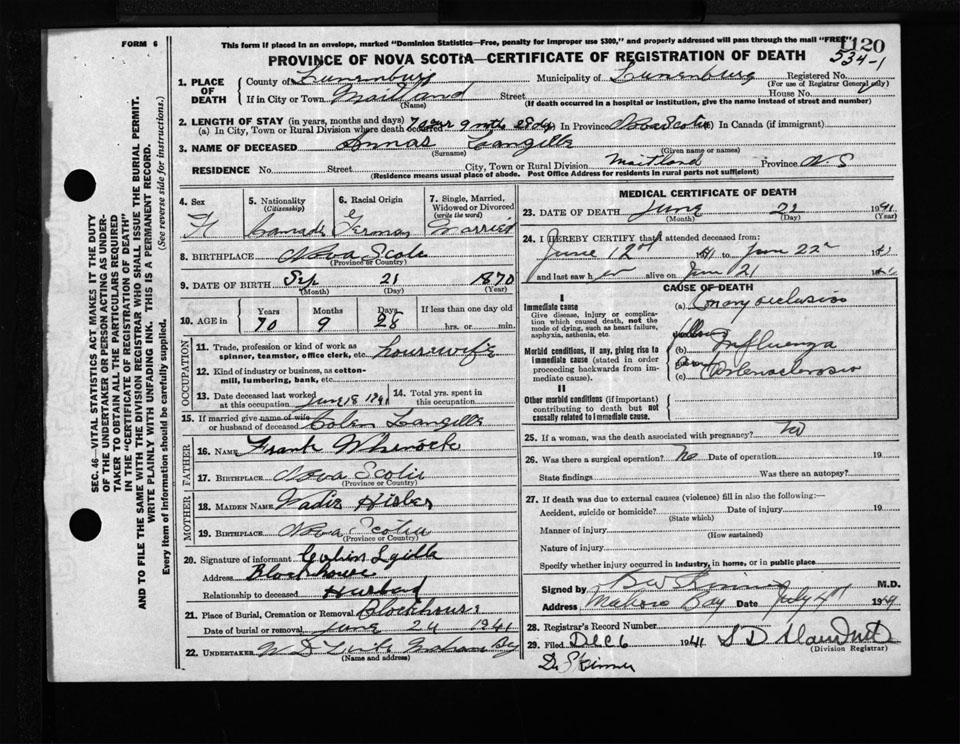 FORM 6
This form if placed in an envelope, marked "Dominion Statistics—Free, penalty for improper use $300," and properly addressed will pass through the mail "FREE"
1120
534-1
PROVINCE OF NOVA SCOTIA—CERTIFICATE OF REGISTRATION OF DEATH
1. PLACE OF DEATH
County of Lunenburg Municipality of Lunenburg Registered No.
(For use of Registrar General only)
If in City or Town Maitland Street House No.
(Name) (If death occurred in a hospital or institution, give the name instead of street and number)
2. LENGTH OF STAY (in years, months and days)
(a) In City, Town or Rural Division where death occurred 70 year 9 mths 28 dy (b) In Province Nova Scotia (c) In Canada (if immigrant)
3. NAME OF DECEASED Annas Langille
(Surname) (Given name or names)
RESIDENCE No. Street City, Town or Rural Division Maitland Province N. S
(Residence means usual place of abode. Post Office Address for residents in rural parts not sufficient)
4. Sex F
5. Nationality (Citizenship) Canada
6. Racial Origin German
7. Single, Married, Widowed or Divorced (write the word) Married
8. BIRTHPLACE Nova Scotia
(Province or Country)
9. DATE OF BIRTH Sep 21 1870
(Month) (Day) (Year)
10. AGE in Years Months Days If less than one day old
70 9 28 hrs. or min.
OCCUPATION
11. Trade, profession or kind of work as spinner, teamster, office clerk, etc. housewife
12. Kind of industry or business, as cotton-mill, lumbering, bank, etc.
13. Date deceased last worked at this occupation June 18 1941
14. Total yrs. spent in this occupation.
15. If married give name of wife or husband of deceased Colin Langille
FATHER
16. NAME Frank
17. BIRTHPLACE Nova Scotia
(Province or Country)
MOTHER
18. MAIDEN NAME
19. BIRTHPLACE Nova Scotia
(Province or Country)
20. Signature of informant
Address Blockhouse
Relationship to deceased Husband
21. Place of Burial, Cremation or Removal Blockhouse
Date of burial or removal June 24 1941
22. UNDERTAKER Mahone Bay
(Name and address)
MEDICAL CERTIFICATE OF DEATH
23. DATE OF DEATH June 22 1941
(Month) (Day) (Year)
24. I HEREBY CERTIFY that I attended deceased from:
June 18th 1941 to June 22
and last saw h er alive on June 21
CAUSE OF DEATH
I
Immediate cause
Give disease, injury or complication which caused death, not the mode of dying, such as heart failure, asphyxia, asthenia, etc.
(a) Coronary occlusion
Morbid conditions, if any, giving rise to immediate cause (stated in order proceeding backwards from immediate cause).
(b) following Influenza
(c) Arteriosclerosis
II
Other morbid conditions (if important) contributing to death but not causally related to immediate cause.
25. If a woman, was the death associated with pregnancy? No
26. Was there a surgical operation? No Date of operation 19
State findings Was there an autopsy?
27. If death was due to external causes (violence) fill in also the following:—
Accident, suicide or homicide? Date of injury 19
(State which)
Manner of injury
(How sustained)
Nature of injury
Specify whether injury occurred in industry, in home, or in public place
Signed by M.D.
Address Mahone Bay Date July 4th
28. Registrar's Record Number
29. Filed Dec 6 1941
(Division Registrar)
Dr Skinner
SEC. 46—VITAL STATISTICS ACT MAKES IT THE DUTY
OF THE UNDERTAKER OR PERSON ACTING AS UNDER-
TAKER TO OBTAIN ALL THE PARTICULARS REQUIRED
IN THE "CERTIFICATE OF REGISTRATION OF DEATH"
AND TO FILE THE SAME WITH THE DIVISION REGISTRAR WHO SHALL ISSUE THE BURIAL PERMIT.
WRITE PLAINLY WITH UNFADING INK. THIS IS A PERMANENT RECORD.
Every item of information should be carefully supplied. (See reverse side for instructions.)